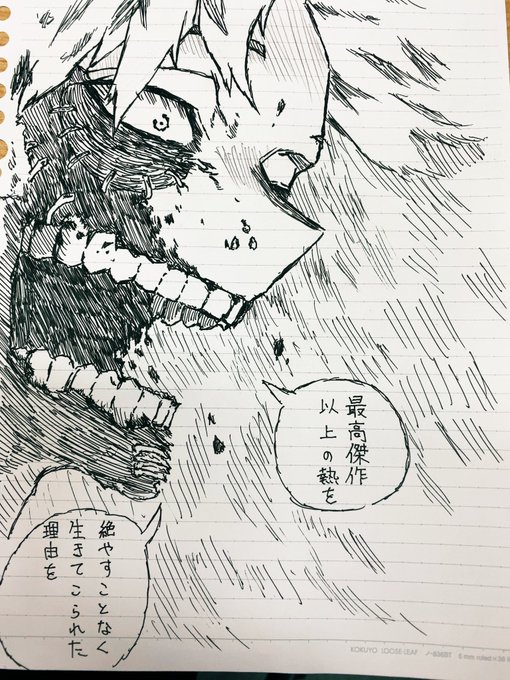 最高傑作
以上の熱を
絶やすことなく
生きてこられた
理由を
KOKUYO LOOSE-LEAF ノ-836BT 6 mm ruled×36